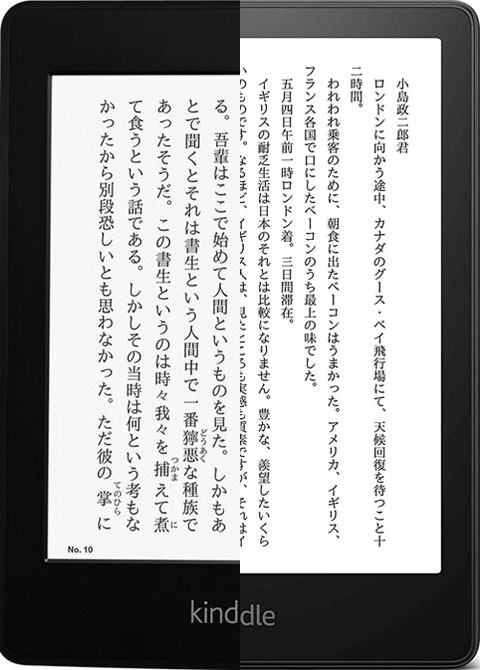 小島政二郎君
ロンドンに向かう途中、カナダのグース・ベイ飛行場にて、天候回復を待つこと十
二時間。
われわれ乗客のために、朝食に出たベーコンはうまかった。アメリカ、イギリス、
フランス各国で口にしたベーコンのうち最上の味でした。
五月四日午前一時ロンドン着。三日間滞在。
イギリスの耐乏生活は日本のそれとは比較になりません。豊かな、羨望したいくら
いのものです。なるほど、イギリス人は、見たところも実感も質素ですが、それはイ
る。吾輩はここで始めて人間というものを見た。しかもあ
とで聞くとそれは書生という人間中で一番獰悪な種族で
どうあく
あったそうだ。この書生というのは時々我々を捕えて煮
つかま に
て食うという話である。しかしその当時は何という考もな
かったから別段恐しいとも思わなかった。ただ彼の掌に
てのひら
No. 10
kinddle